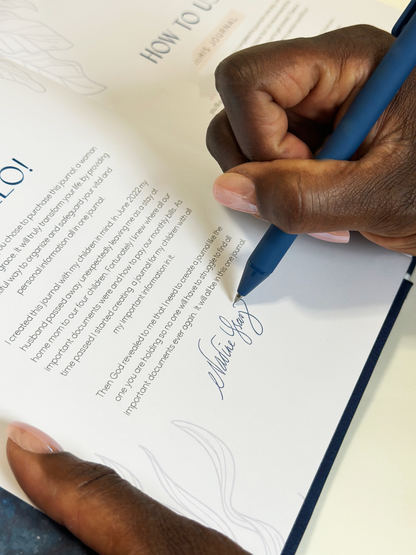 HOW TO U
HIS JOURNAL
LLO!
ou chose to purchase this journal, a woman
grace. It will truly transform your life by providing
tiful way to organize and safeguard your vital and
personal information all in one journal.
I created this journal with my children in mind. In June 2022 my
husband passed away unexpectedly leaving me as a stay at
home mom to our four children. Fortunately I knew where all our
important documents were and how to pay our monthly bills. As
time passed I started creating a journal for my children with all
my important information in it.
Then God revealed to me that I need to create a journal like the
one you are holding so no one will have to struggle to find all
important documents ever again. It will all be in this one journal.
Nadine Gray